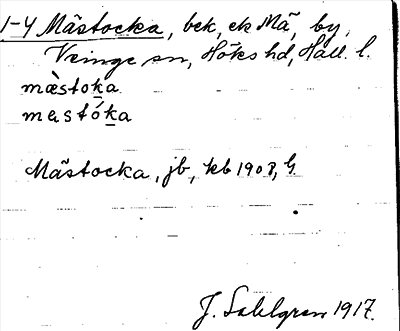 1-4 Mästocka, bek, ek Mä, by,
Veinge sn, Höks hd, Hall. l.
mæ̀stoḵa
mastóḵa
Mästocka, jb, kb 1908, G.
J. Sahlgren 1917.